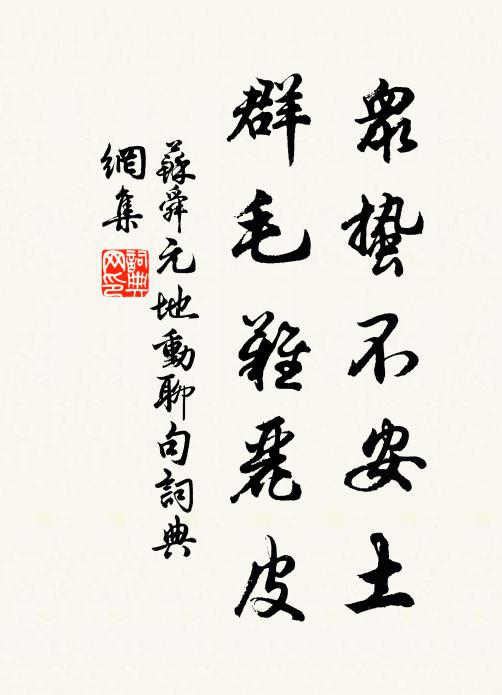 衆蟄不安土
群毛難麗皮
蘇舜元地動聊句詞典
網集
詞典
网印